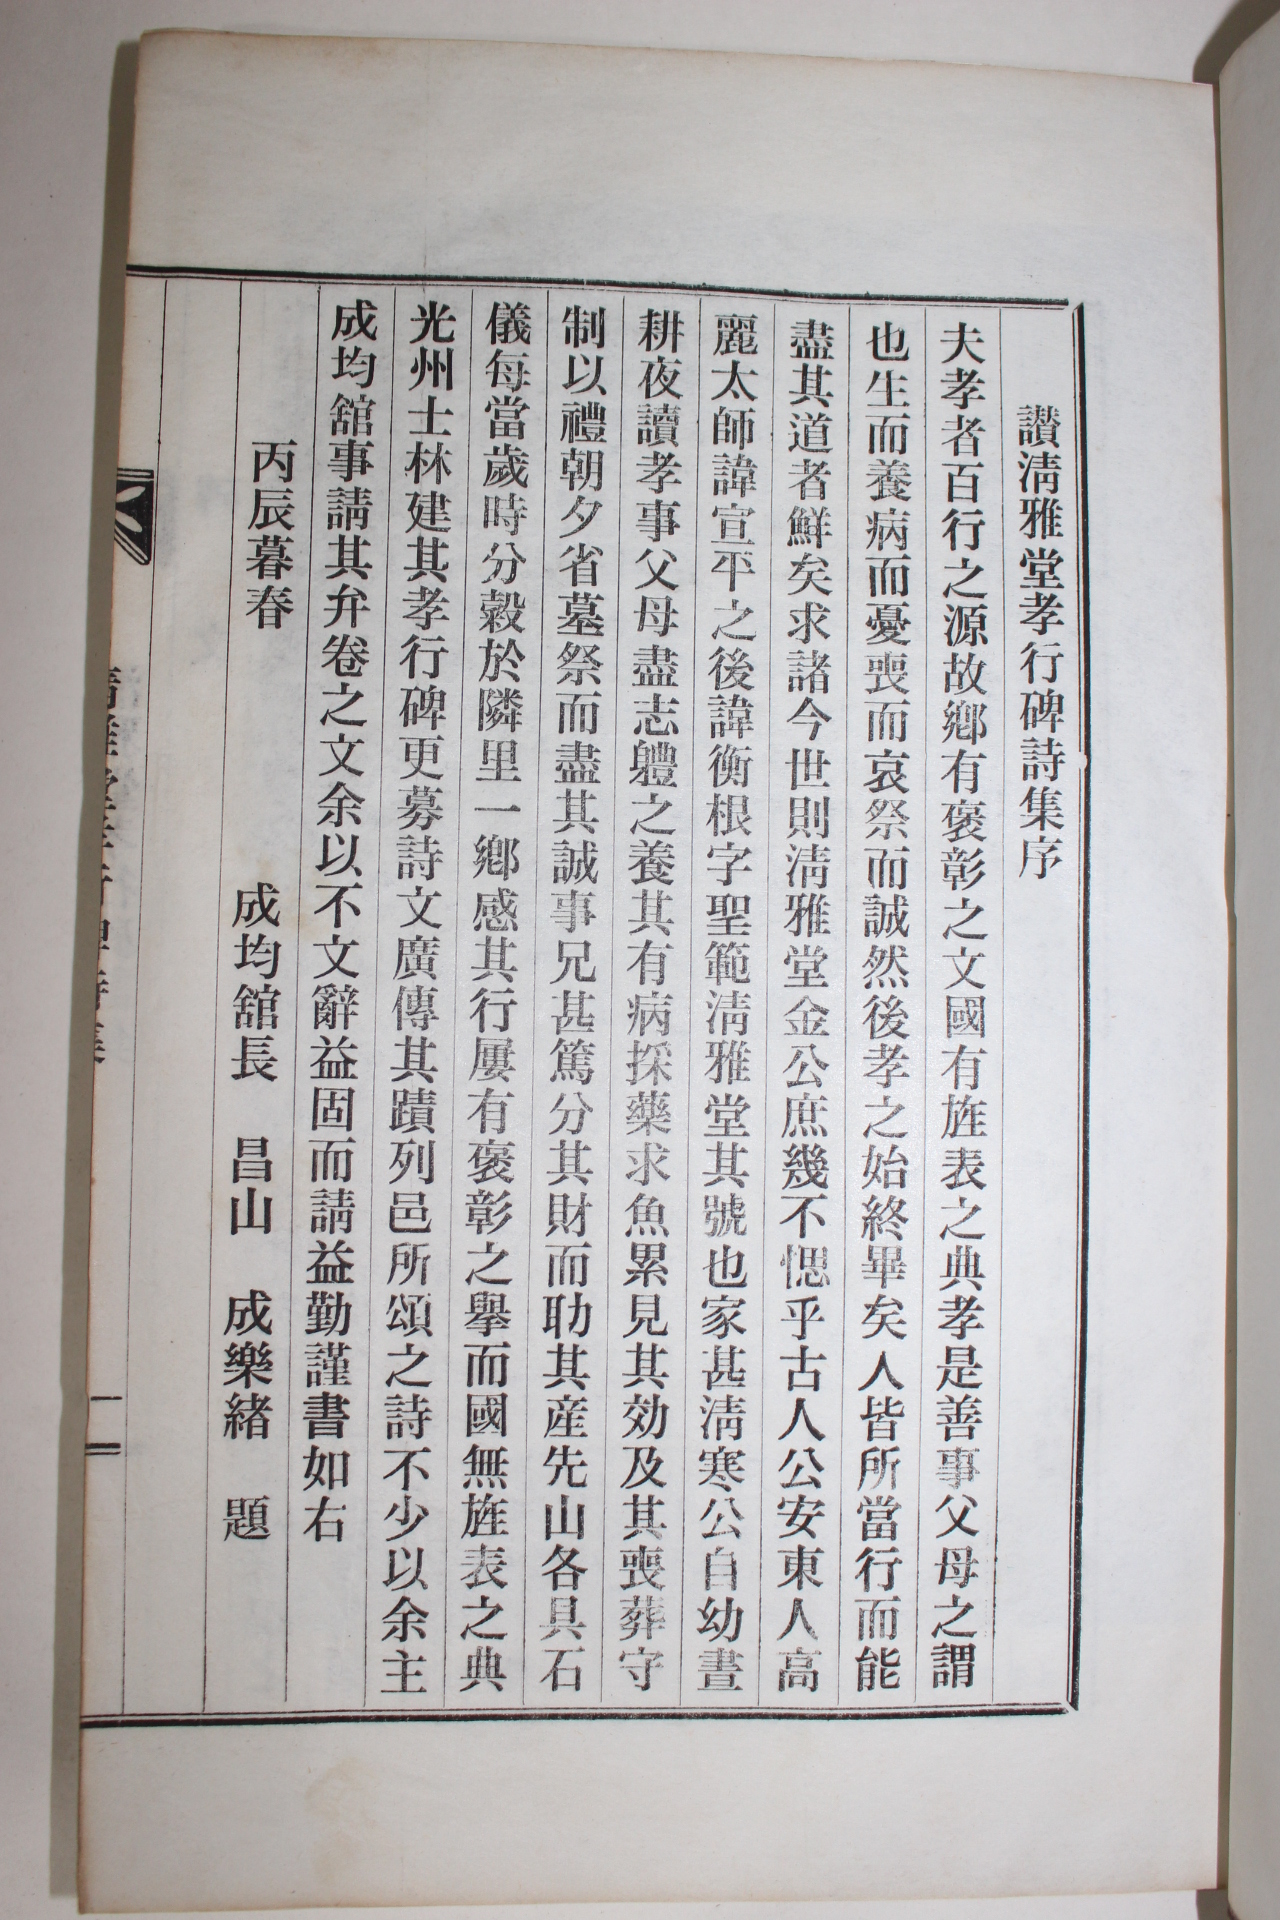 讃淸雅堂孝行碑詩集序
夫孝者百行之源故鄕有褒彰之文國有旌表之典孝是善事父母之謂
也生而養病而憂喪而哀祭而誠然後孝之始終畢矣人皆所當行而能
盡其道者鮮矣求諸今世則淸雅堂金公庶幾不愢乎古人公安東人高
麗太師諱宣平之後諱衡根字聖範淸雅堂其號也家甚淸寒公自幼晝
耕夜讀孝事父母盡志軆之養其有病採藥求魚累見其効及其喪葬守
制以禮朝夕省墓祭而盡其誠事兄甚篤分其財而助其産先山各具石
儀每當歲時分穀於隣里一鄕感其行屢有褒彰之擧而國無旌表之典
光州士林建其孝行碑更募詩文廣傳其蹟列邑所頌之詩不少以余主
成均舘事請其弁卷之文余以不文辭益固而請益勤謹書如右
丙辰暮春　成均舘長　昌山　成樂緖　題
淸雅堂孝行碑詩集　一